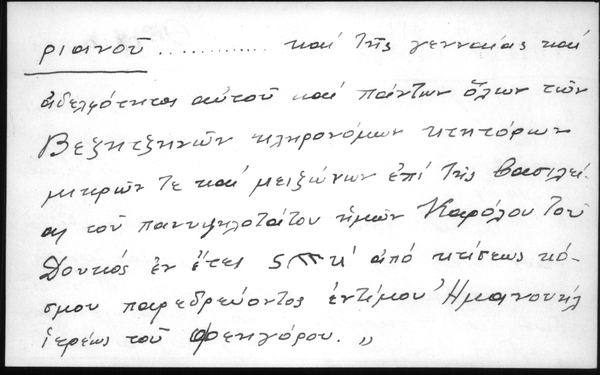 ριανοῦ ............ καί τῆς γενναίας καί
ἀδελφότητος αὐτοῦ καί πάντων ὅλων τῶν
Βεζητζηνῶν κληρονόμων κτητόρων
μικρῶν τε καί μειζώνων ἐπί τῆς βασιλεί-
ας τοῦ πανυψηλοτάτου ἡμῶν Καρόλου τοῦ
Δουκός ἐν ἔτει κ' ἀπό κτίσεως κό-
σμου παρεδρεύοντος ἐντίμου Ἡμανουήλ
ἱερέως τοῦ Φενηγόρου. „